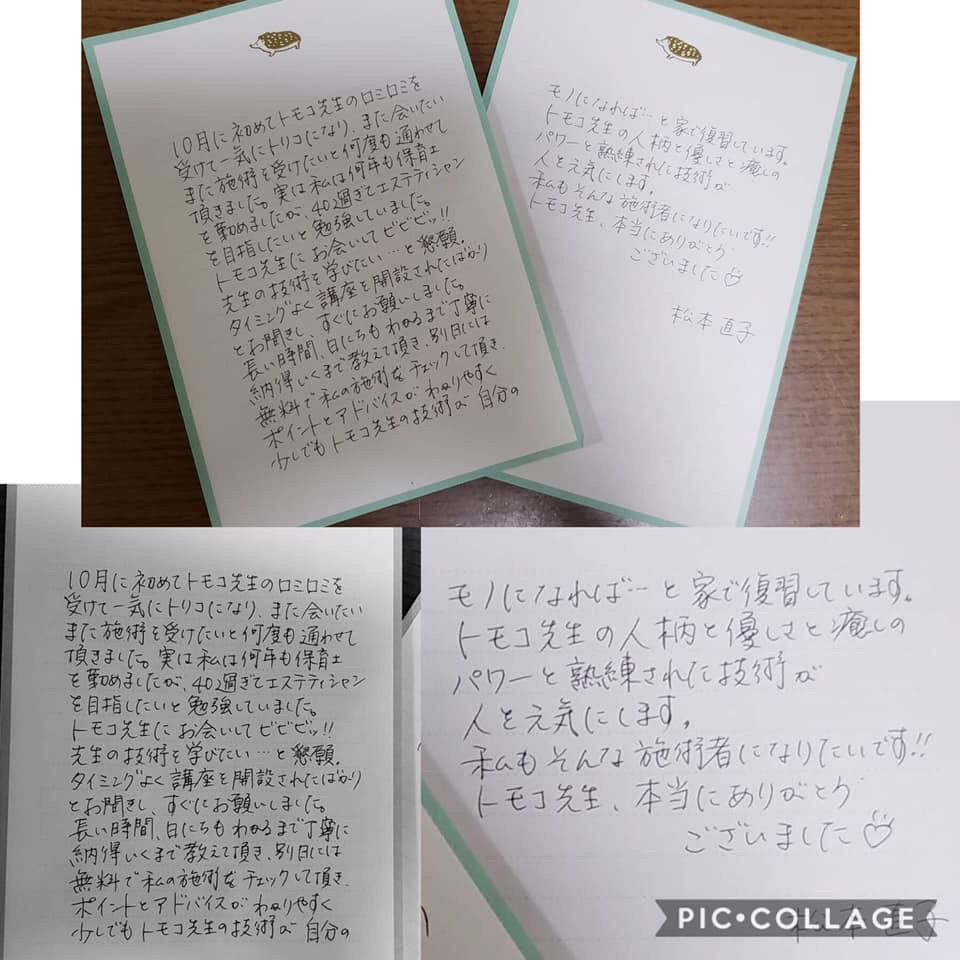 10月に初めてトモコ先生のロミロミを
受けて一気にトリコになり、また会いたい
また施術を受けたいと何度も通わせて
頂きました。実は私は何年も保育士
を勤めましたが、40過ぎてエステティシャン
を目指したいと勉強していました。
トモコ先生にお会いしてビビビッ!!
先生の技術を学びたい…と懇願。
タイミングよく講座を開設されたばかり
とお聞きし、すぐにお願いしました。
長い時間、日にちもわかるまで丁寧に
納得いくまで教えて頂き、別日には
無料で私の施術をチェックして頂き、
ポイントとアドバイスがわかりやすく
少しでもトモコ先生の技術が自分の
モノになれば…と家で復習しています。
トモコ先生の人柄と優しさと癒しの
パワーと熟練された技術が
人を元気にします。
私もそんな施術者になりたいです!!
トモコ先生、本当にありがとう
ございました♡
松本直子
10月に初めてトモコ先生のロミロミを
受けて一気にトリコになり、また会いたい
また施術を受けたいと何度も通わせて
頂きました。実は私は何年も保育士
を勤めましたが、40過ぎてエステティシャン
を目指したいと勉強していました。
トモコ先生にお会いしてビビビッ!!
先生の技術を学びたい…と懇願。
タイミングよく講座を開設されたばかり
とお聞きし、すぐにお願いしました。
長い時間、日にちもわかるまで丁寧に
納得いくまで教えて頂き、別日には
無料で私の施術をチェックして頂き、
ポイントとアドバイスがわかりやすく
少しでもトモコ先生の技術が自分の
モノになれば…と家で復習しています。
トモコ先生の人柄と優しさと癒しの
パワーと熟練された技術が
人を元気にします。
私もそんな施術者になりたいです!!
トモコ先生、本当にありがとう
ございました♡
松本直子
PIC•COLLAGE